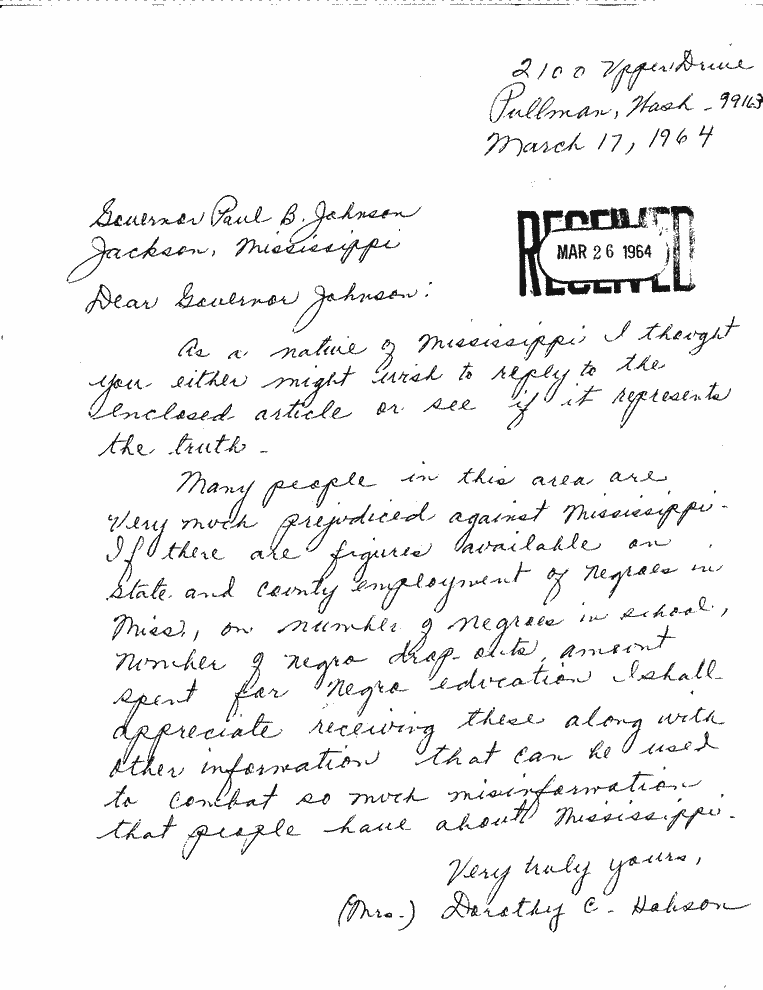 2100 Upper Drive
Pullman, Wash - 99163
March 17, 1964
Governor Paul B. Johnson
Jackson, Mississippi
RECEIVED
MAR 26 1964
Dear Governor Johnson:
As a native of Mississippi I thought
you either might wish to reply to the
enclosed article or see if it represents
the truth -
Many people in this area are
very much prejudiced against Mississippi -
If there are figures available on
state and county employment of Negroes in
Miss., on number of negroes in school,
number of negro drop-outs, amount
spent for Negro education I shall
appreciate receiving these along with
other information that can be used
to combat so much misinformation
that people have about Mississippi -
Very truly yours,
(Mrs.) Dorothy C. Hobson